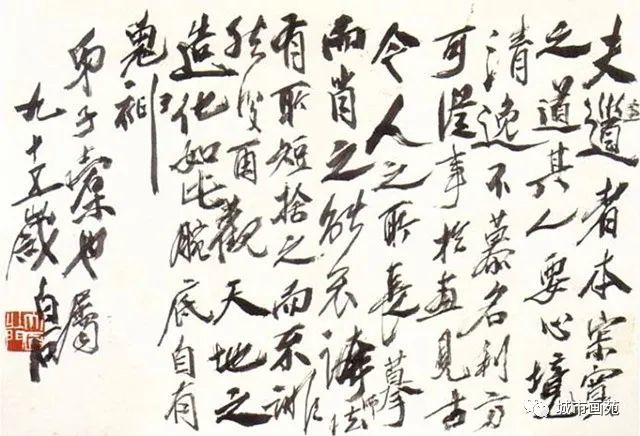 夫畫者本寂寞
之道其人要心境
清逸不慕名利方
可從事於畫見古
今人之所長摹
而肖之能不誇師法
有所短捨之而不誹
然後再觀天地之
造化如此腕底自有
鬼神
弟子也屬
九十五歲白石
城市画苑